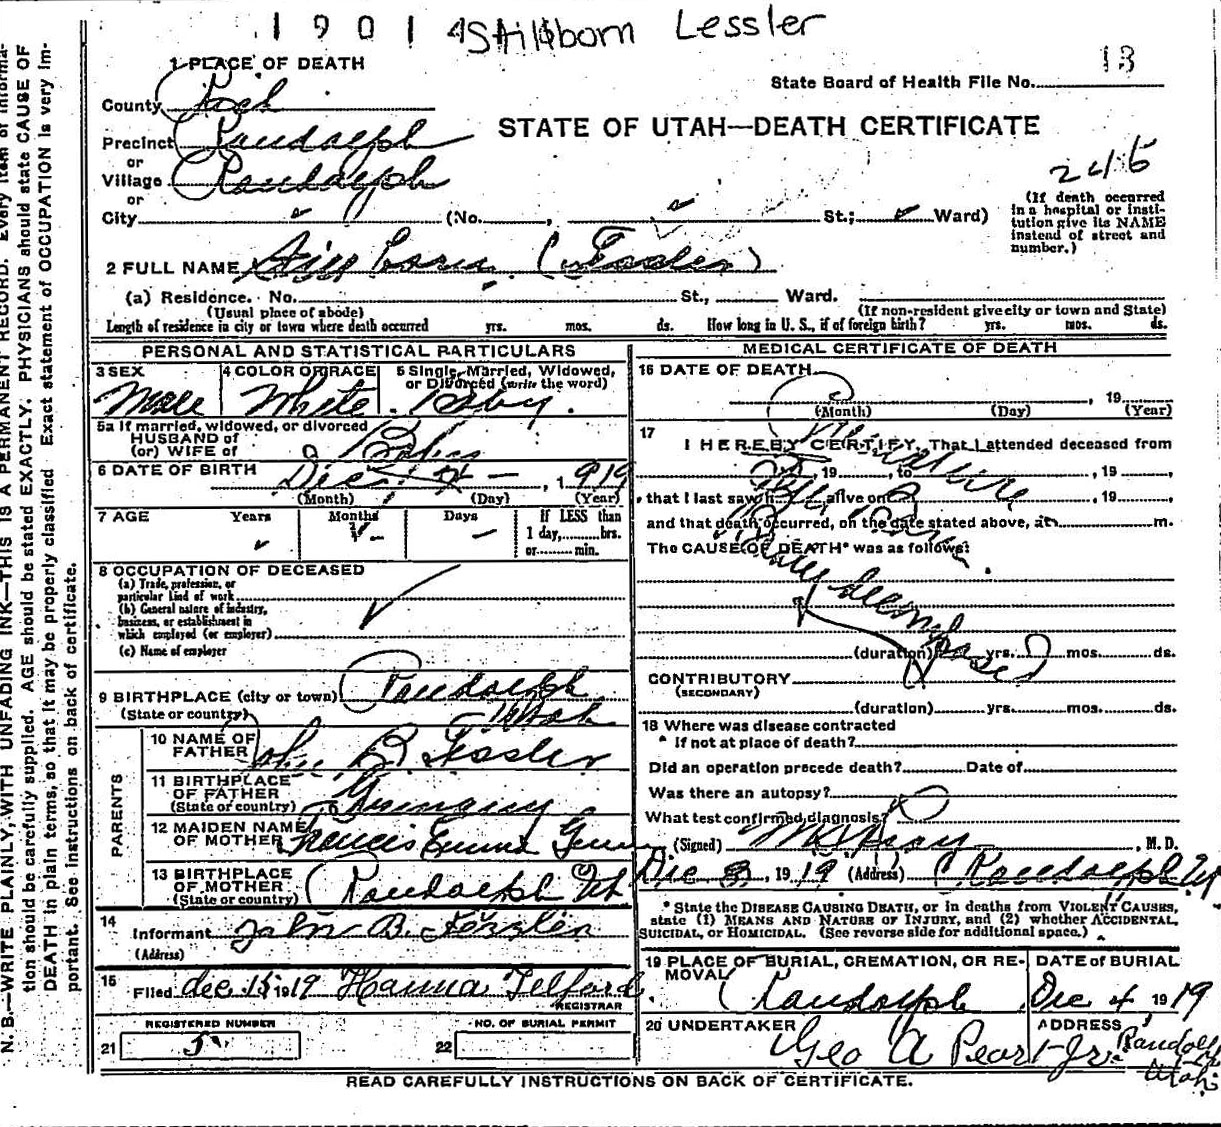 1901 Stillborn Lessler
13
1 PLACE OF DEATH
State Board of Health File No.
County Rich
STATE OF UTAH—DEATH CERTIFICATE
Precinct Randolph
or
Village Randolph
or
City (No. , St.; Ward)
246
(If death occurred
in a hospital or insti-
tution give its NAME
instead of street and
number.)
2 FULL NAME Still Born. (Fessler)
(a) Residence. No. St., Ward.
(Usual place of abode) (If non-resident give city or town and State)
Length of residence in city or town where death occurred yrs. mos. ds. How long in U. S., if of foreign birth? yrs. mos. ds.
PERSONAL AND STATISTICAL PARTICULARS
3 SEX 4 COLOR OR RACE 5 Single, Married, Widowed,
or Divorced (write the word)
Male White Baby.
5a If married, widowed, or divorced
HUSBAND of
(or) WIFE of
6 DATE OF BIRTH Dec , 1919
(Month) (Day) (Year)
7 AGE Years Months Days If LESS than
1 day, hrs.
or min.
8 OCCUPATION OF DECEASED
(a) Trade, profession, or
particular kind of work
(b) General nature of industry,
business, or establishment in
which employed (or employer)
(c) Name of employer
9 BIRTHPLACE (city or town) Randolph
(State or country) Utah
PARENTS
10 NAME OF
FATHER John B. Fessler
11 BIRTHPLACE
OF FATHER
(State or country) Germany
12 MAIDEN NAME
OF MOTHER Francis Emma
13 BIRTHPLACE
OF MOTHER
(State or country) Randolph Ut
14
Informant John B. Fessler
(Address)
15
Filed dec 15 1919 Hanna Telford
REGISTRAR
REGISTERED NUMBER NO. OF BURIAL PERMIT
21 5 22
MEDICAL CERTIFICATE OF DEATH
16 DATE OF DEATH
, 19
(Month) (Day) (Year)
17
I HEREBY CERTIFY, That I attended deceased from
, 19 , to , 19 ,
that I last saw h alive on , 19 ,
and that death occurred, on the date stated above, at m.
The CAUSE OF DEATH* was as follows:
Premature
Still Born
Body decomposed
(duration) yrs. mos. ds.
CONTRIBUTORY
(SECONDARY)
(duration) yrs. mos. ds.
18 Where was disease contracted
If not at place of death?
Did an operation precede death? Date of
Was there an autopsy?
What test confirmed diagnosis?
(Signed) , M. D.
Dec 3, 1919 (Address) Randolph Ut
* State the DISEASE CAUSING DEATH, or in deaths from VIOLENT CAUSES,
state (1) MEANS AND NATURE OF INJURY, and (2) whether ACCIDENTAL,
SUICIDAL, or HOMICIDAL. (See reverse side for additional space.)
19 PLACE OF BURIAL, CREMATION, OR RE-
MOVAL DATE of BURIAL
Randolph Dec 4 1919
20 UNDERTAKER ADDRESS
Geo A Peart Jr. Randolph
Utah
READ CAREFULLY INSTRUCTIONS ON BACK OF CERTIFICATE.
N. B.—WRITE PLAINLY, WITH UNFADING INK—THIS IS A PERMANENT RECORD. Every item of informa-
tion should be carefully supplied. AGE should be stated EXACTLY. PHYSICIANS should state CAUSE OF
DEATH in plain terms, so that it may be properly classified. Exact statement of OCCUPATION is very im-
portant. See instructions on back of certificate.